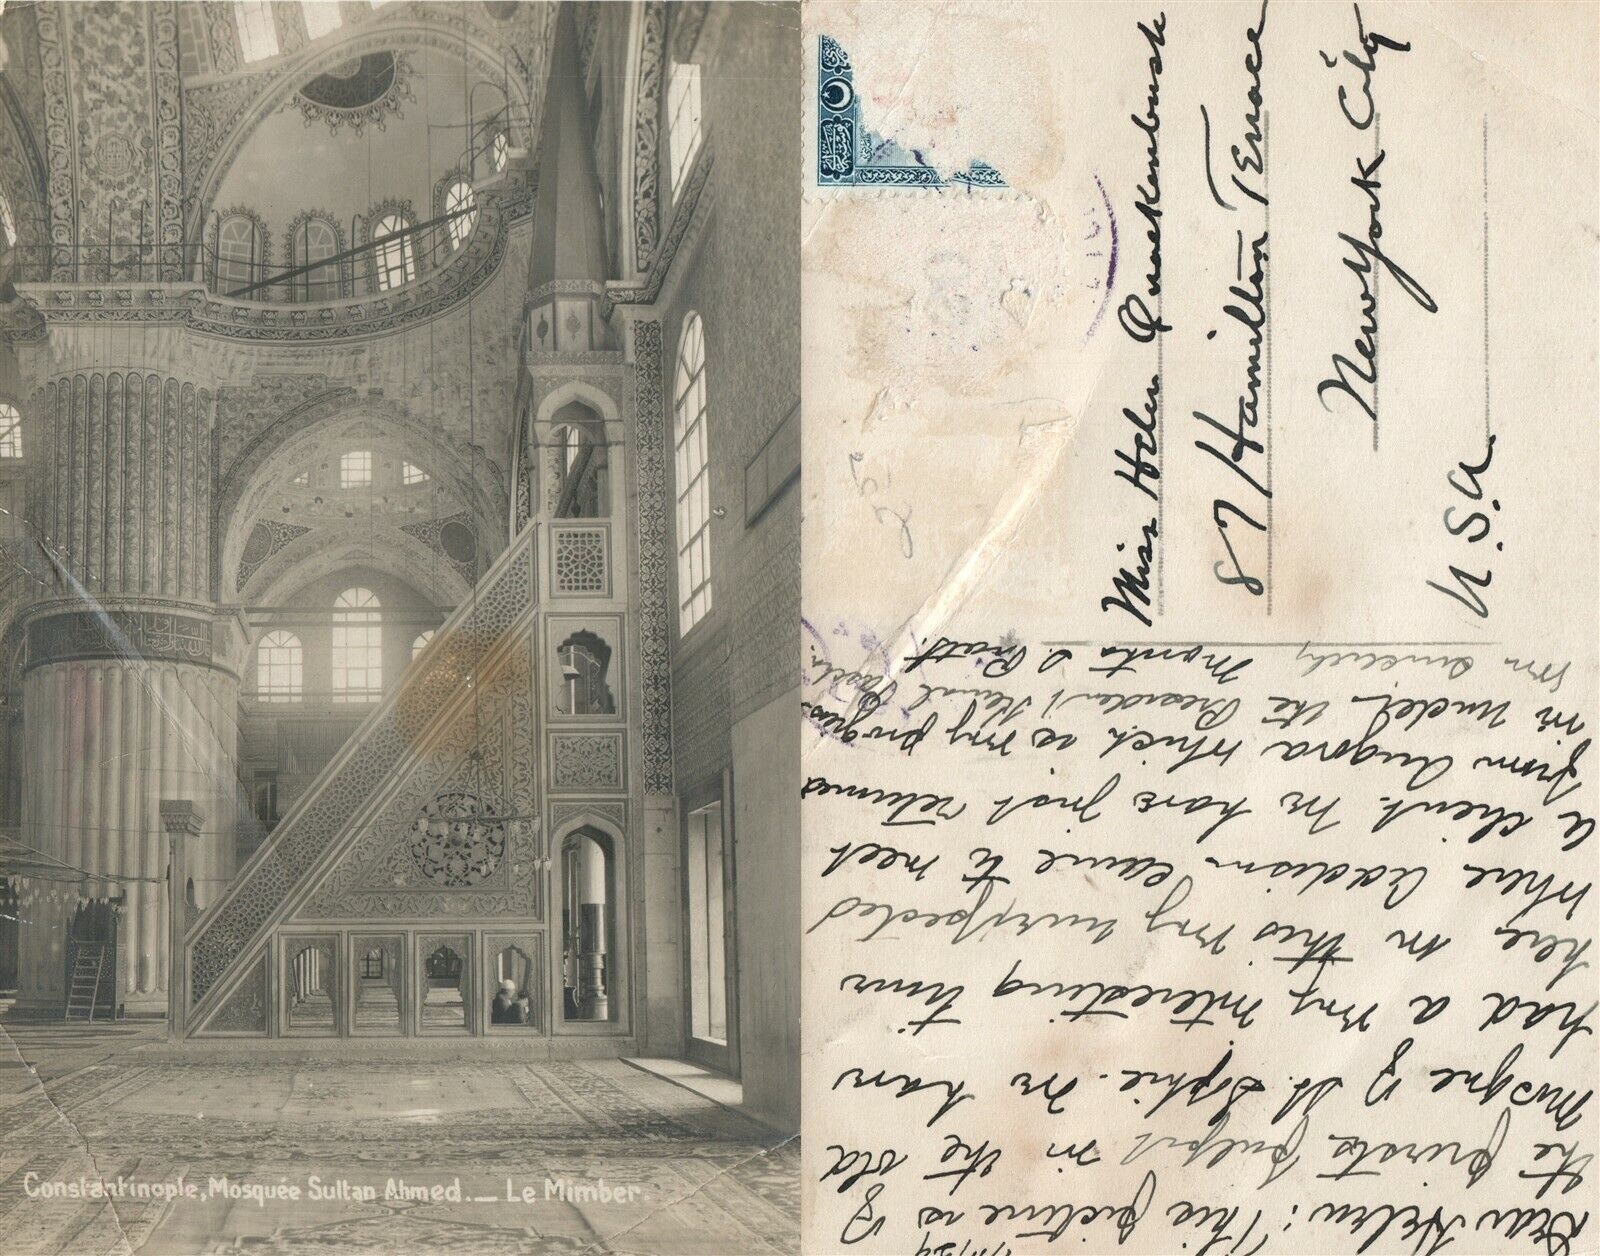 Constantinople, Mosquée Sultan Ahmed. _ Le Mimber.
Miss Helen Quackenbush
87 Hamilton Terrace
New York City
U.S.A.
25
Dear Helen: This picture is of
the priests pulpit in the old
Mosque of St. Sophie. We have
had a very interesting time
here in this very unexpected
where Addison came to meet
a client. We have just returned
from Angora which is very progressive
under the President, Kemal Pasha.
sincerely